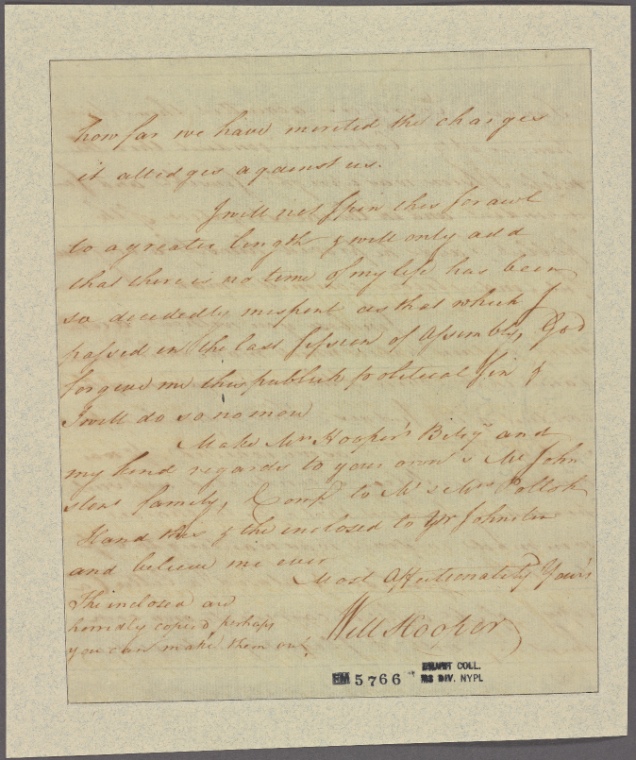 how far we have merited the charges
it alledges against us.
I will not spin this scrawl
to a greater length & will only add
that there is no time of my life has been
so decidedly mispent as that which I
passed in the last session of Assembly, God
forgive me this publick political sin &
I will do so no more
Make Mrs Hooper's and
my kind regards to your own & Mr John
stons family, Comp to Mr & Mrs Pollok
Hand this & the inclosed to Gr Johnston
and believe me ever
Most Affectionately Yours
The inclosed are
horridly copied perhaps
you can make them out
Will Hooper
EM 5766
EMMET COLL.
MS DIV. NYPL